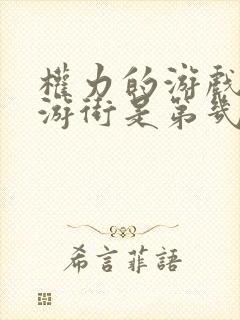 權力的游戲
游街是第幾
希言菲語